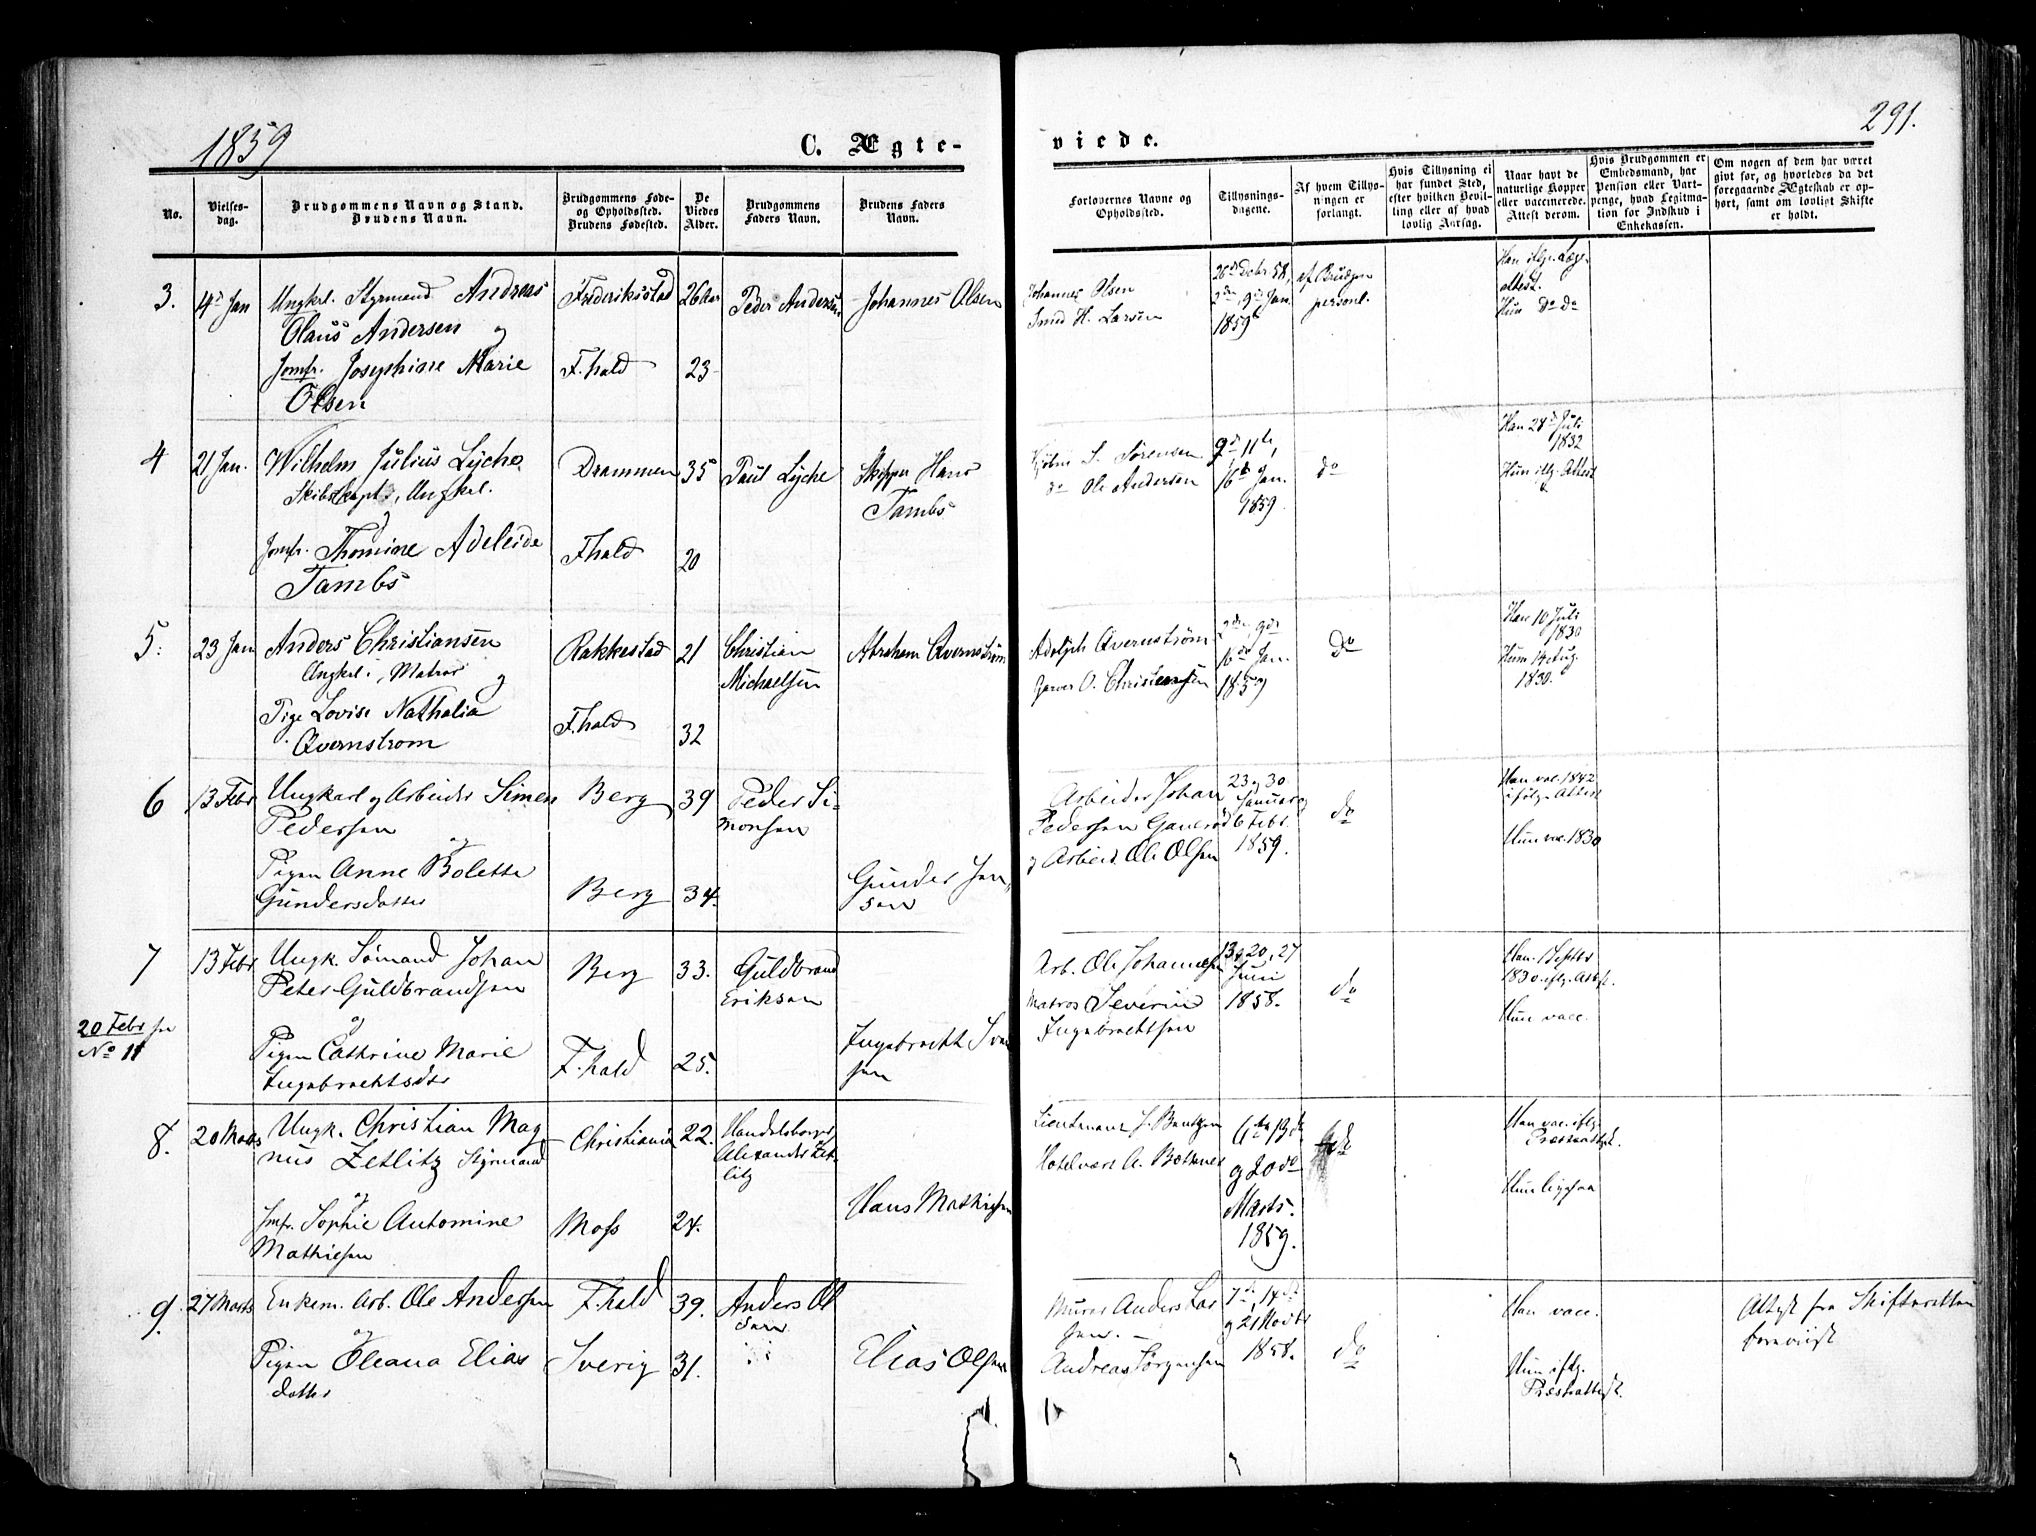 1859
C. Ægte-
No.
Vielses-
dag.
Brudgommens Navn og Stand.
Brudens Navn.
Brudgommens Føde-
og Opholdssted.
Brudens Fødested.
De
Viedes
Alder.
Brudgommens
Faders Navn.
Brudens Faders
Navn.
3. 4de Jan Ungkrl. Styrmand Andreas Frederiksstad 26 Aar Peder Andersen Johannes Olsen
Olaus Andersen
og
Jomfr. Josephine Marie F.hald 23
Olsen
4 21 Jan. Wilhelm Julius Lyche Drammen 35 Paul Lyche Skipper Hans
Skibskapt., Ungkrl. Tambs
Jomfr. Thomine Adeleide Fhald 20
Tambs
5. 23 Jan Anders Christiansen Rakkestad 21 Christian Abraham Qvernstrøm
Ungkrl., Matros Michaelsen
og
Pige Lovise Nathalia F.hald 32
Qvernstrom
6 13 Febr Ungkarl og Arbeider Simen Berg 39 Peder Si-
Pedersen monsen
og
Pigen Anne Bolette Berg 34. Gunder Jan-
Gundersdatter sen
7 13 Febr Ungk. Sømand Johan Berg 33. Guldbrand
Peter Guldbrandsen Eriksen
20 Febr se
No 11
og
Pigen Cathrine Marie F.hald 25. Ingebrecht Sven
Ingebrechtsdtr sen
8. 20 Marts Ungk. Christian Mag Christiania 22. Handelsborger
nus Zetlitz Styrmand Alexander Zet-
litz
og
Jmfr. Sophie Antomine Moss 24. Hans Mathiesen
Mathiesen
9. 27 Marts Enkem. Arb. Ole Andersen F.hald 39. Anders Ol
sen
og
Pigen Oleana Elias Sverig 31. Elias Olsen
datter
291.
viede.
Forlovernes Navne og
Opholdssted.
Tillysnings-
dagene.
Af hvem Tillys-
ningen er
forlangt.
Hvis Tillysning ei
har fundet Sted,
efter hvilken Bevil-
ling eller af hvad
lovlig Aarsag.
Naar havt de
naturlige Kopper
eller vaccinerede.
Attest derom.
Hvis Brudgommen er
Embedsmand, har
Pension eller Vart-
penge, hvad Legitma-
tion for Indskud i
Enkekassen.
Om nogen af dem har været
givt før, og hvorledes da det
foregaaende Ægteskab er op-
hørt, samt om lovligt Skifte
er holdt.
Johannes Olsen 26de Debr 58, af Brudgom Han iflg. Læge-
Smed H. Larsen 2den, 9de Jan. personl. attest.
1859 Hun do do
S. Sørensen 9de, 11te, do Han 24de Juli
do Ole Andersen 16de Jan. 1832
1859. Hun iflg. Attest
Adolph Qvernstrøm 2den, 9de do Han 10 Juli
16de Jan. 1830
Garver O. Christensen 1859 Hun 14 Aug.
1830.
Arbeider Johan 23 og 30 do Han vac. 1842
Pedersen Januar og ifølge Attest
6 Febr.
og Arbeid. Ole Olsen 1859. Hun vac. 1830
Arb. Ole Johannesen 13, 20, 27 do Han
Juni 1830 iflg. Attest.
Matros Severin 1858. Hun vacc.
Ingebrechtsen
Lieutenant J. Bentzen 6te, 13de do Han vac. iflg.
Præsteattest.
Hotelvært A. Bøttner og 20de Hun ligesaa
Marts.
1859.
Murer Anders Lar 7de, 14de Han vacc. Attest fra Skifteretten
sen. og 21 Novbr do forevist
Andreas Jørgensen 1858. Hun iflg.
Præsteattest.